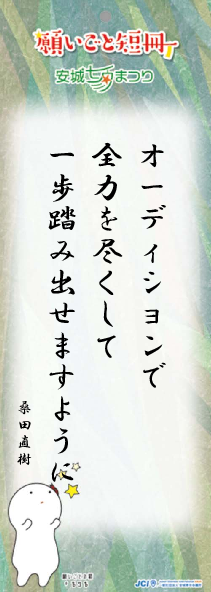 願いごと短冊
安城七夕まつり
オーディションで
全力を尽くして
一歩踏み出せますように
桑田直樹
JCI